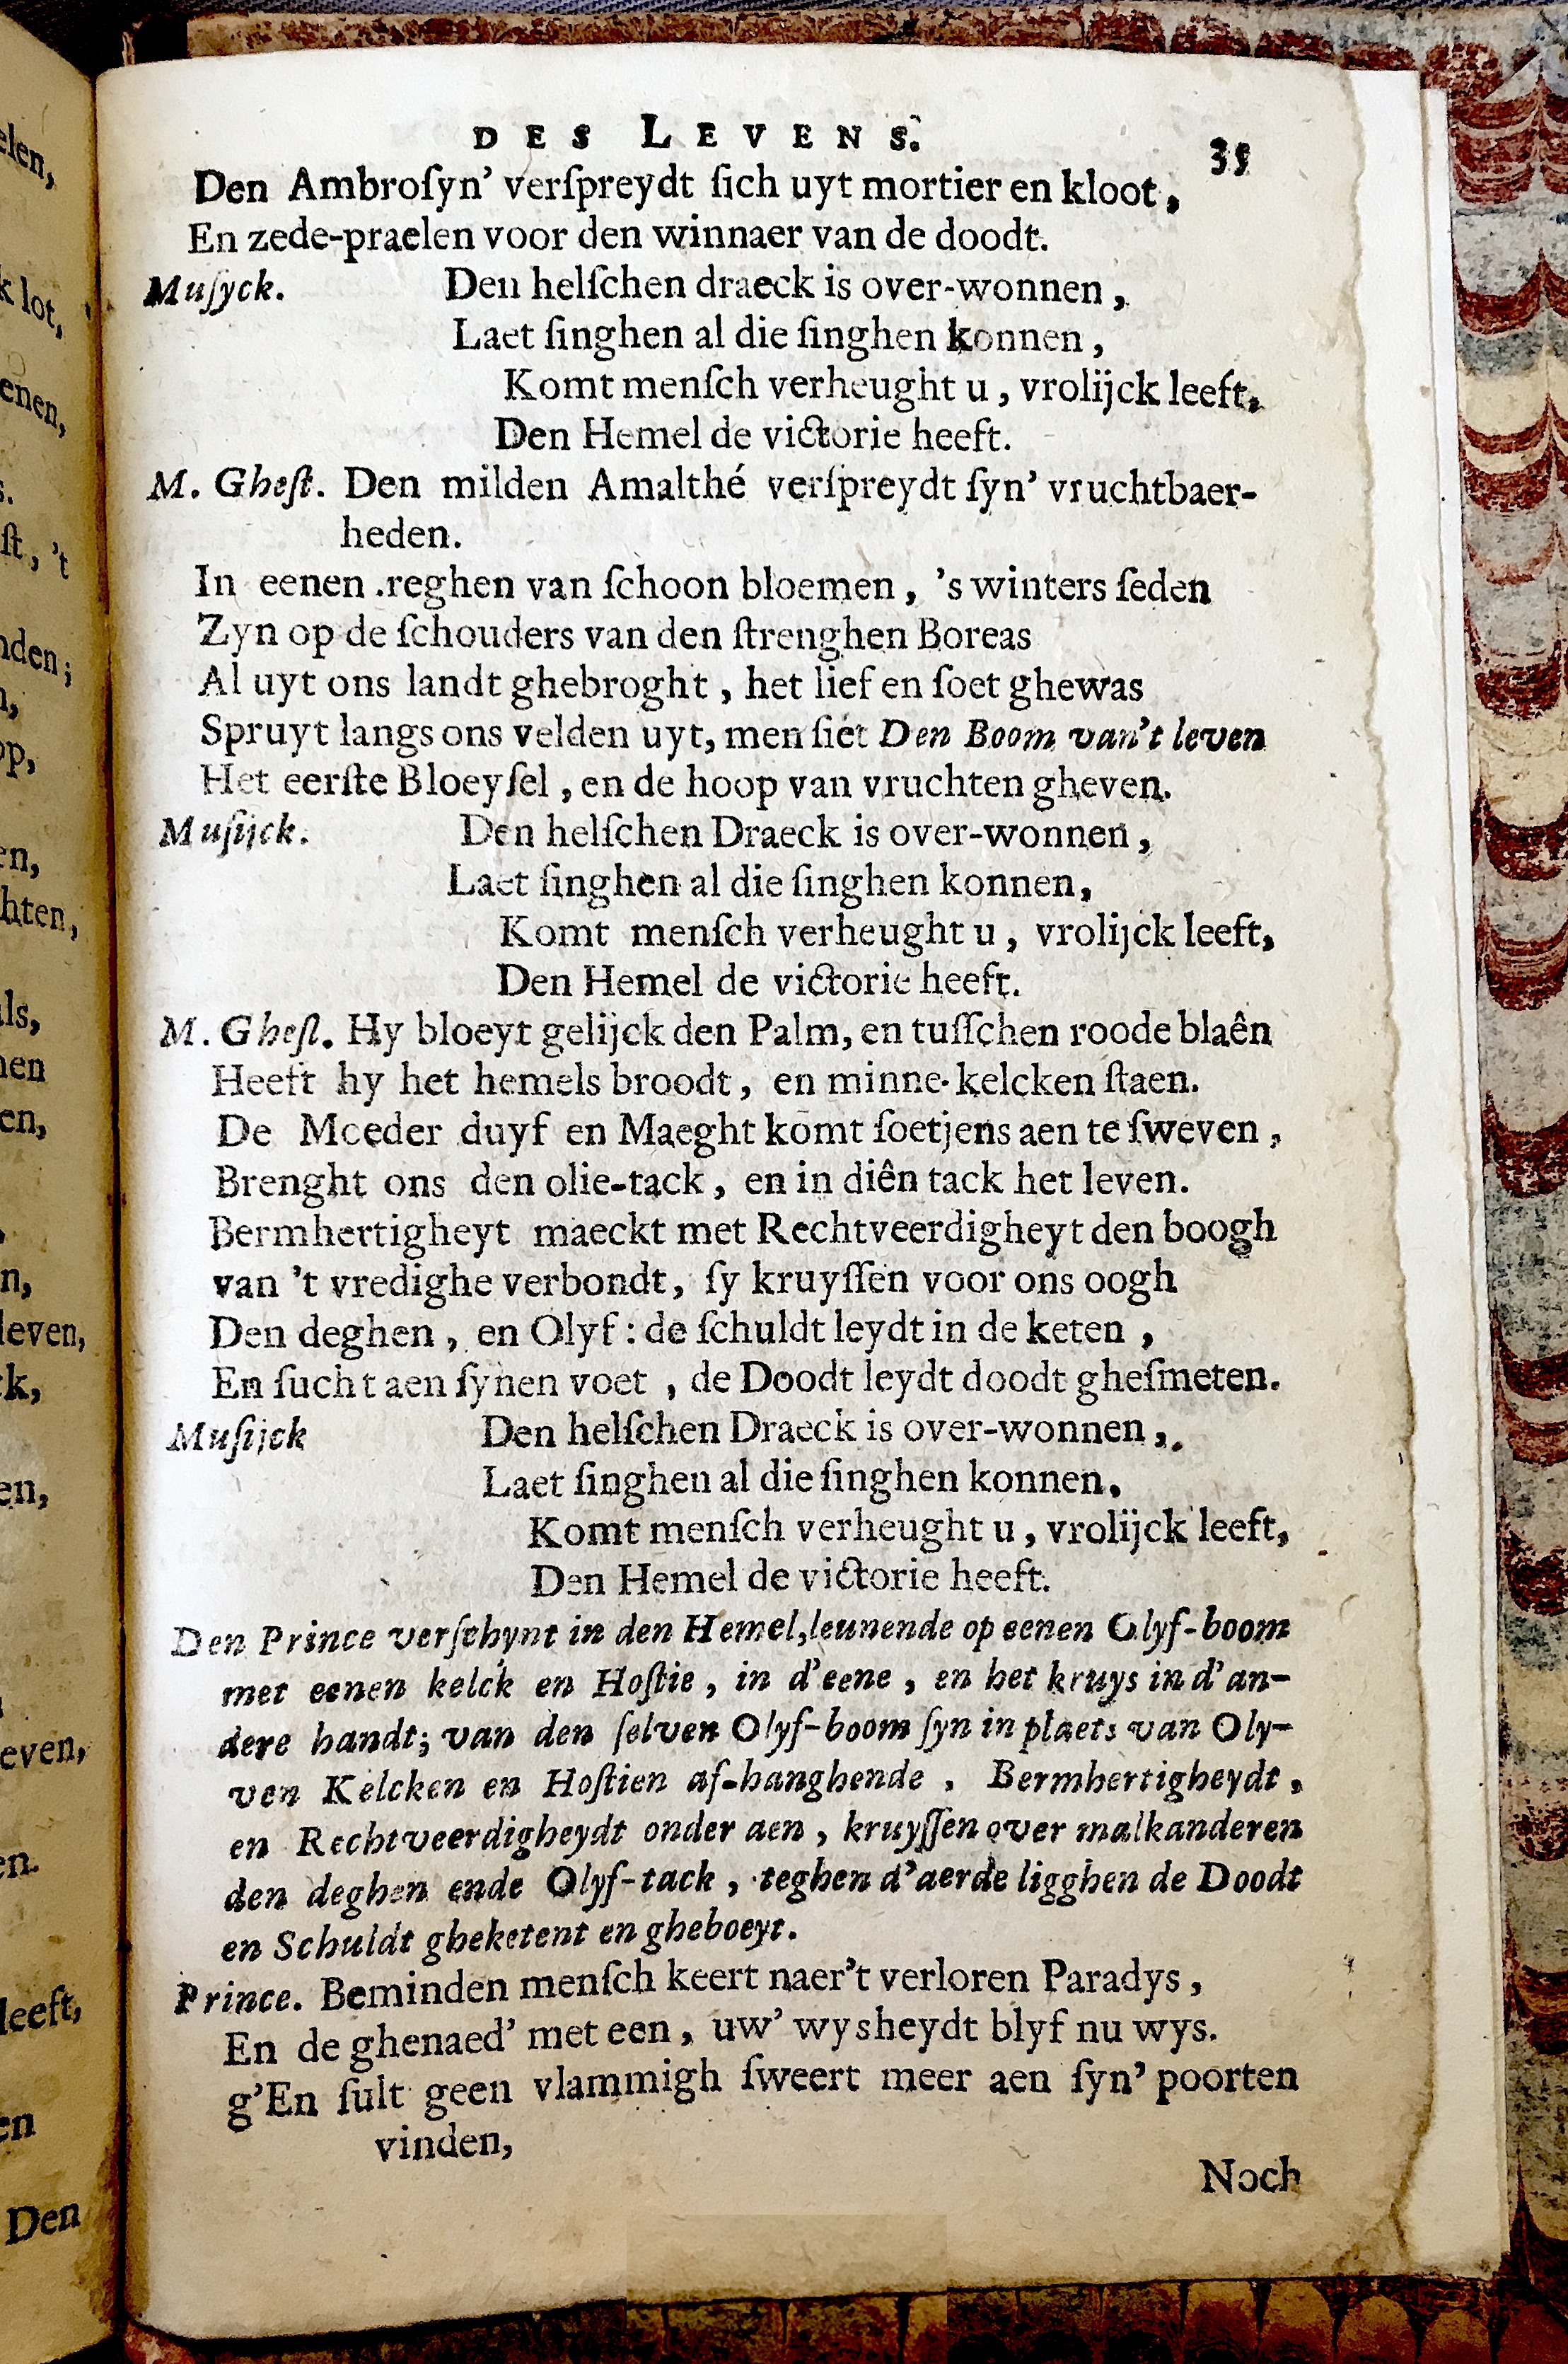 DES LEVENS. 35
Den Ambroſyn' verſpreydt ſich uyt mortier en kloot,
En zede-praelen voor den winnaer van de doodt.
Muſyck. Den helſchen draeck is over-wonnen,
Laet ſinghen al die ſinghen konnen,
Komt menſch verheught u, vrolijck leeft,
Den Hemel de victorie heeft.
M. Gheſt. Den milden Amalthé verſpreydt ſyn' vruchtbaer-
heden.
In eenen .reghen van ſchoon bloemen, 's winters ſeden
Zyn op de ſchouders van den ſtrenghen Boreas
Al uyt ons landt ghebroght, het lief en ſoet ghewas
Spruyt langs ons velden uyt, men ſiet Den Boom van't leven
Het eerſte Bloeyſel, en de hoop van vruchten gheven.
Muſijck. Den helſchen Draeck is over-wonnen,
Laet ſinghen al die ſinghen konnen,
Komt menſch verheught u, vrolijck leeft,
Den Hemel de victorie heeft.
M. Gheſt. Hy bloeyt gelijck den Palm, en tuſſchen roode blaên
Heeft hy het hemels broodt, en minne-kelcken ſtaen.
De Moeder duyf en Maeght komt ſoetjens aen te ſweven,
Brenght ons den olie-tack, en in diên tack het leven.
Bermhertigheyt maeckt met Rechtveerdigheyt den boogh
van 't vredighe verbondt, ſy kruyſſen voor ons oogh
Den deghen, en Olyf: de ſchuldt leydt in de keten,
En ſucht aen ſynen voet, de Doodt leydt doodt gheſmeten.
Muſijck Den helſchen Draeck is over-wonnen,.
Laet ſinghen al die ſinghen konnen.
Komt menſch verheught u, vrolijck leeft,
Den Hemel de victorie heeft.
Den Prince verſchynt in den Hemel, leunende op eenen Olyf-boom
met eenen kelck en Hoſtie, in d'eene, en het kruys in d'an-
dere handt; van den ſelven Olyf-boom ſyn in plaets van Oly-
ven Kelcken en Hoſtien af-hanghende, Bermhertigheydt,
en Rechtveerdigheydt onder aen, kruyſſen over malkanderen
den deghen ende Olyf-tack, teghen d'aerde ligghen de Doodt
en Schuldt gheketent en gheboeyt.
Prince. Beminden menſch keert naer't verloren Paradys,
En de ghenaed' met een, uw' wysheydt blyf nu wys.
g'En ſult geen vlammigh ſweert meer aen ſyn' poorten
vinden,
Noch